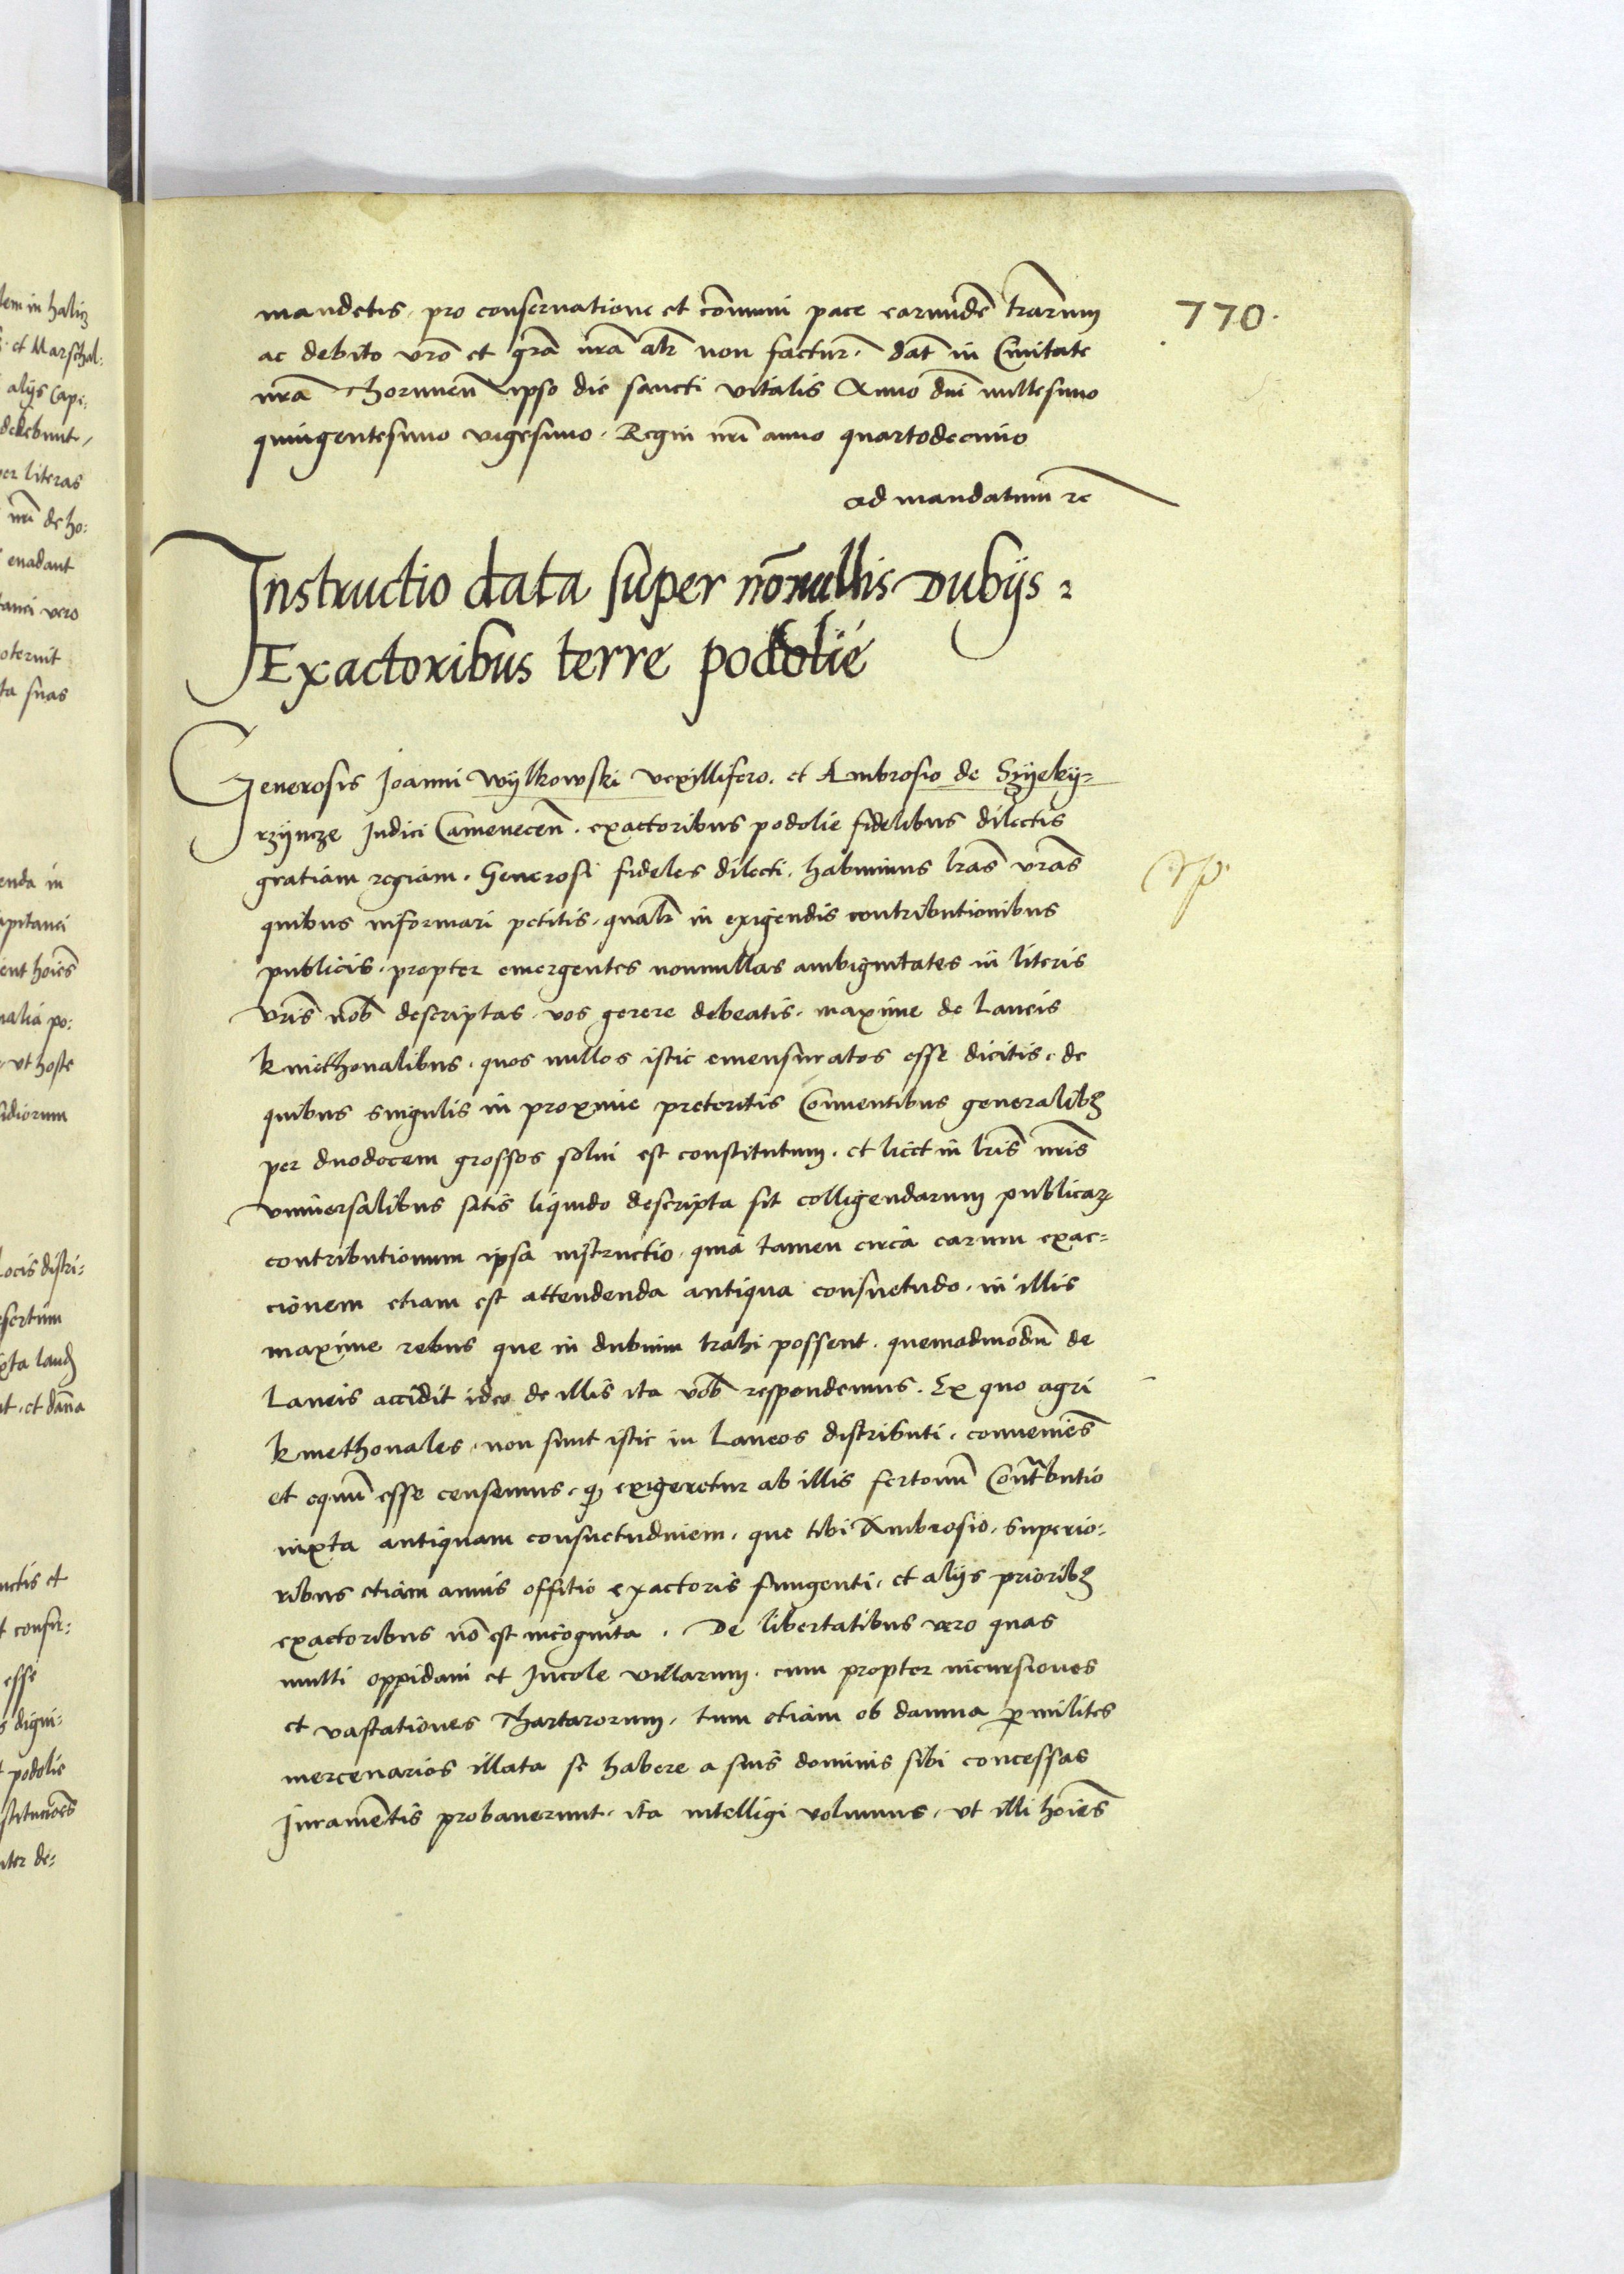 770.
mandetis, pro conseruatione et cōmuni pace earumdē trarum
ac debito vrō et grā nrā alr̄ non factur̄. dat̄ in Ciuitate
nrā Thorunen̄ ipso die sancti vitalis Anno dn̄i millesimo
quingentesimo vigesimo. Regni nr̄i anno quartodecimo
ad mandatum rc
Instructio data super nōnullis Dubijs.
Exactoribus terre podolie
Generosis Joanni Wylkowski vexillifero. et Ambrosio de Szyeky=
rzyncze Judici Camenecen̄. exactoribus podolie fidelibus dilectis
gratiam regiam. Generosi fideles dilecti. habuimus lras̄ vras̄
quibus informari petitis, qualr̄ in exigendis contributionibus
publicis, propter emergentes nonnullas ambiguitates in literis
vris̄ nob̄ descriptas, vos gerere debeatis. maxime de Laneis
kmethonalibus, quos nullos istic emensuratos esse dicitis, de
quibus singulis in proxime preteritis Conuentibus generalibȝ
per duodecem grossos solui est constitutum. et licet in lris̄ nris̄
vniuersalibus satis liquido descripta sit colligendarum publicaꝝ
contributionum ipsa instructio, quia tamen circa earum exac=
cionem etiam est attendenda antiqua consuetudo, in illis
maxime rebus que in dubium trahi possent. quemadmodū de
Laneis accidit ideo de illis ita vob̄ respondemus. Ex quo agri
kmethonales, non sunt istic in Laneos distributi, conueniēs
et equū esse censemus, ꝙ exigeretur ab illis fertonū Contr̄butio
iuxta antiquam consuetudinem, que tibi Ambrosio, superio:
ribus etiam annis offitio exactoris fungenti, et alijs prioribȝ
exactoribus nō est incognita. De libertatibus vero quas
multi oppidani et Incole villarum, cum propter incursiones
et vastationes Thartarorum, tum etiam ob damna ꝑ milites
mercenarios illata se habere a suis dominis sibi concessas
Iuramentis probauerunt, ita intelligi volumus, vt illi hoiēs